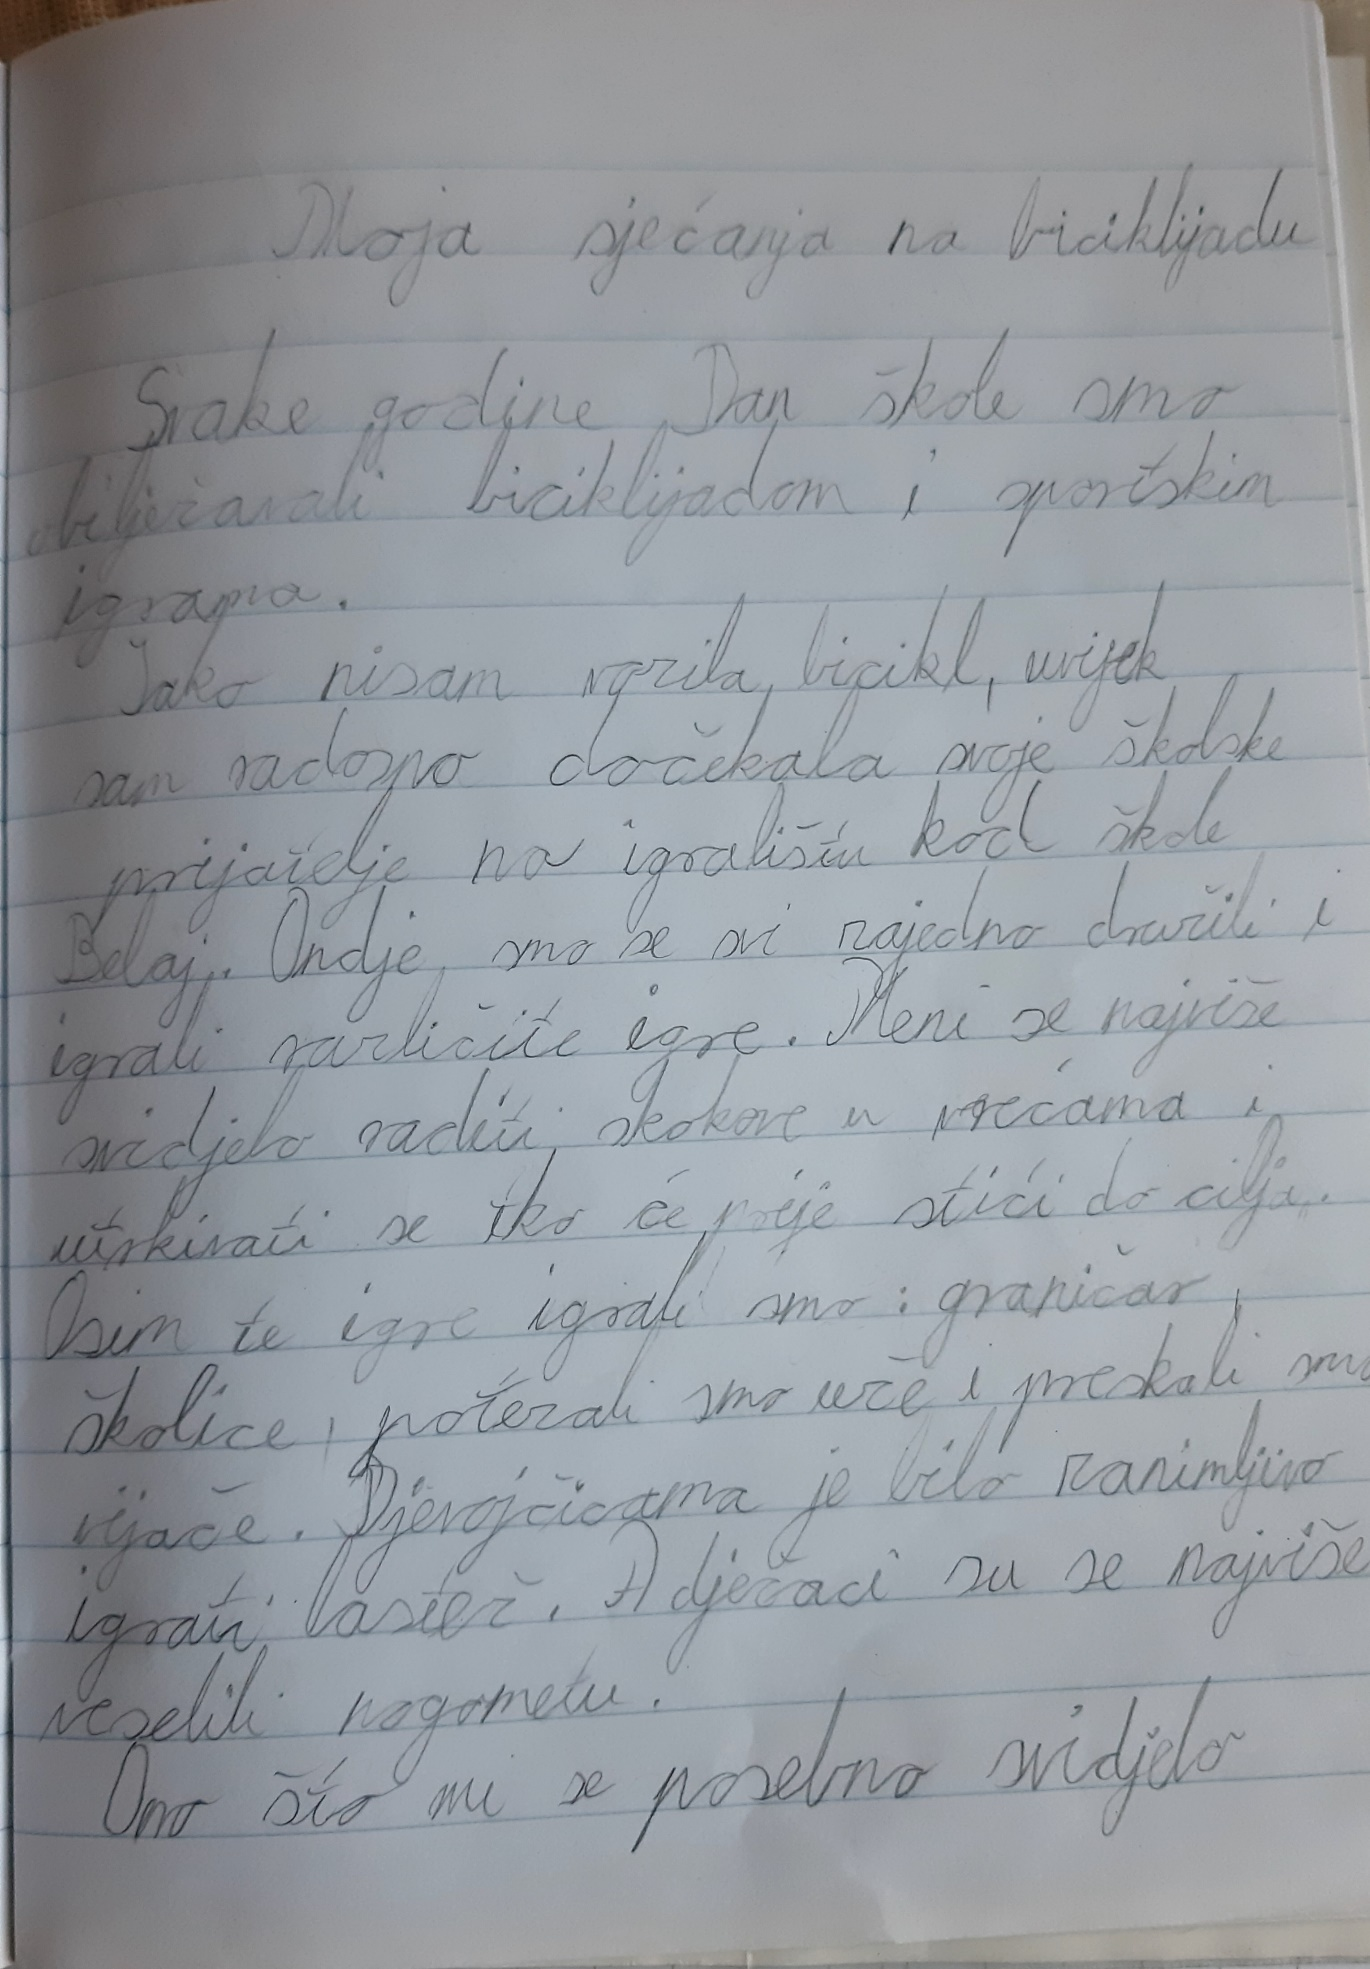 Moja sjećanja na biciklijadu
Svake godine Dan škole smo
obilježavali biciklijadom i sportskim
igrama.
Iako nisam vozila bicikl, uvijek
sam radosno dočekala svoje školske
prijatelje na igralištu kod škole
Belaj. Ondje smo se svi zajedno družili i
igrali različite igre. Meni se najviše
svidjelo raditi skokove u vrećama i
utrkivati se tko će prije stići do cilja.
Osim te igre igrali smo: graničar,
školice, potezali smo uže i preskali smo
vijače. Djevojčicama je bilo zanimljivo
igrati lastež. A dječaci su se najviše
veselili nogometu.
Ono što mi se posebno svidjelo